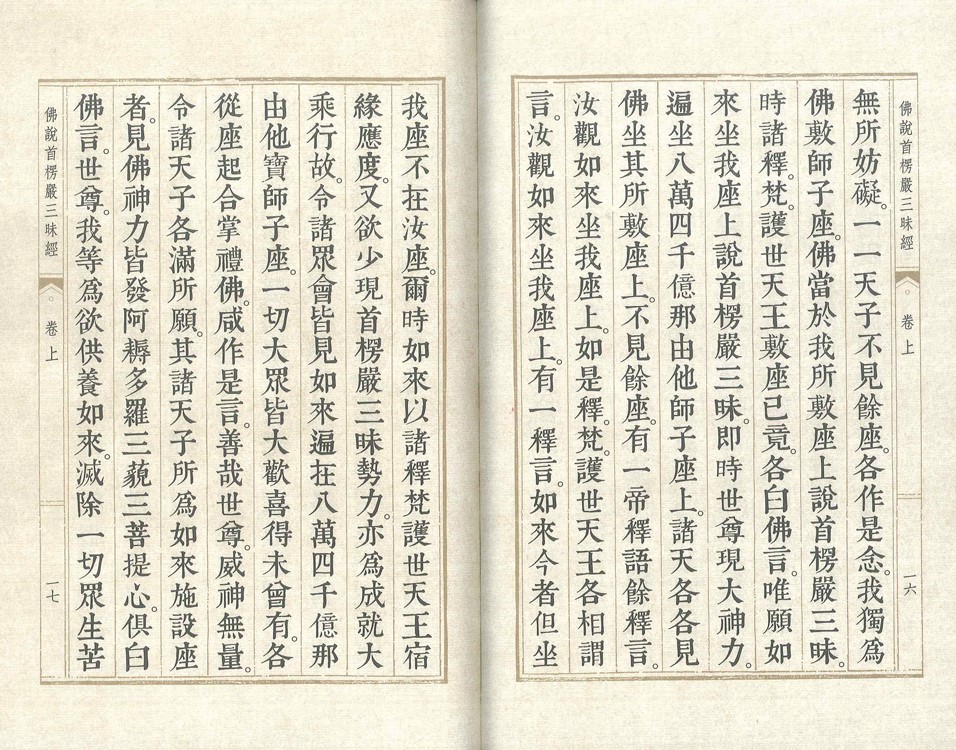 佛說首楞嚴三昧經 卷上 一六
無所妨礙。一一天子不見餘座。各作是念。我獨為
佛敷師子座。佛當於我所敷座上說首楞嚴三昧。
時諸釋。梵。護世天王敷座已竟。各白佛言。唯願如
來坐我座上說首楞嚴三昧。即時世尊現大神力。
遍坐八萬四千億那由他師子座上。諸天各各見
佛坐其所敷座上。不見餘座。有一帝釋語餘釋言。
汝觀如來坐我座上。如是釋。梵。護世天王各相謂
言。汝觀如來坐我座上。有一釋言。如來今者但坐
我座不在汝座。爾時如來以諸釋梵護世天王宿
緣應度。又欲少現首楞嚴三昧勢力。亦為成就大
乘行故。令諸眾會皆見如來遍在八萬四千億那
由他寶師子座。一切大眾皆大歡喜得未曾有。各
從座起合掌禮佛。咸作是言。善哉世尊。威神無量。
令諸天子各滿所願。其諸天子所為如來施設座
者。見佛神力皆發阿耨多羅三藐三菩提心。俱白
佛言。世尊。我等為欲供養如來。滅除一切眾生苦
佛說首楞嚴三昧經 卷上 一七